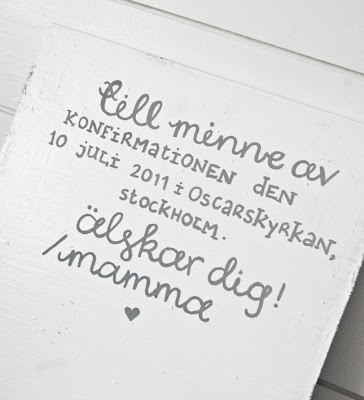 till minne av
KONFIRMATIONEN DEN
10 JULI 2011 i OSCARSKYRKAN,
STOCKHOLM.
älskar dig!
/mamma
♥